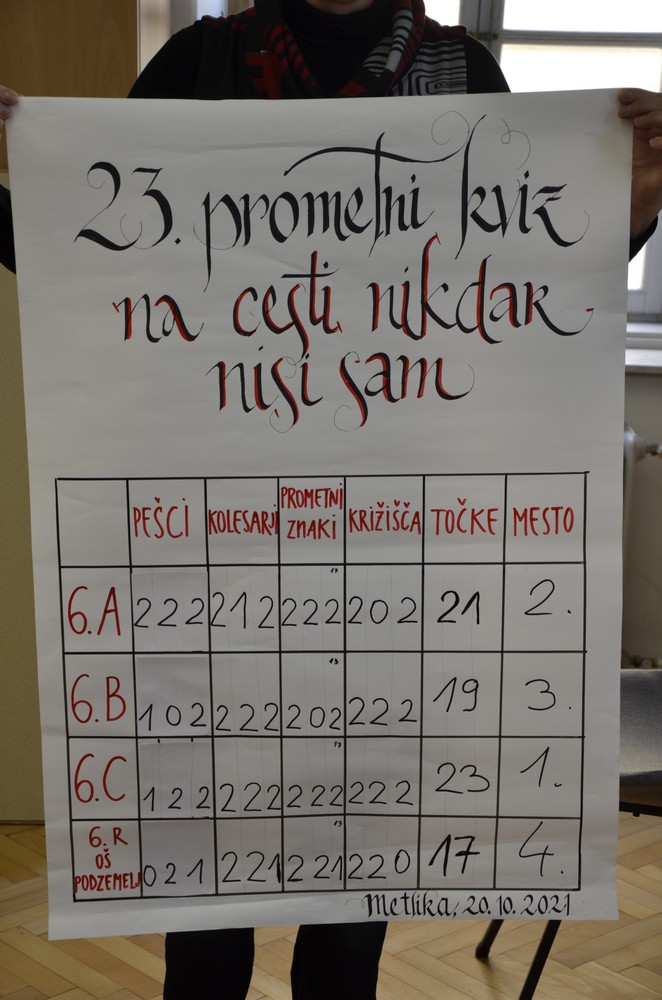 23. prometni kviz
na cesti nikdar
nisi sam
PEŠCI KOLESARJI PROMETNI ZNAKI KRIŽIŠČA TOČKE MESTO
6.A 222 212 222 202 21 2.
6.B 102 222 202 222 19 3.
6.C 122 222 222 222 23 1.
6. R OŠ PODZEMELJ 021 221 221 220 17 4.
Metlika, 20.10.2021